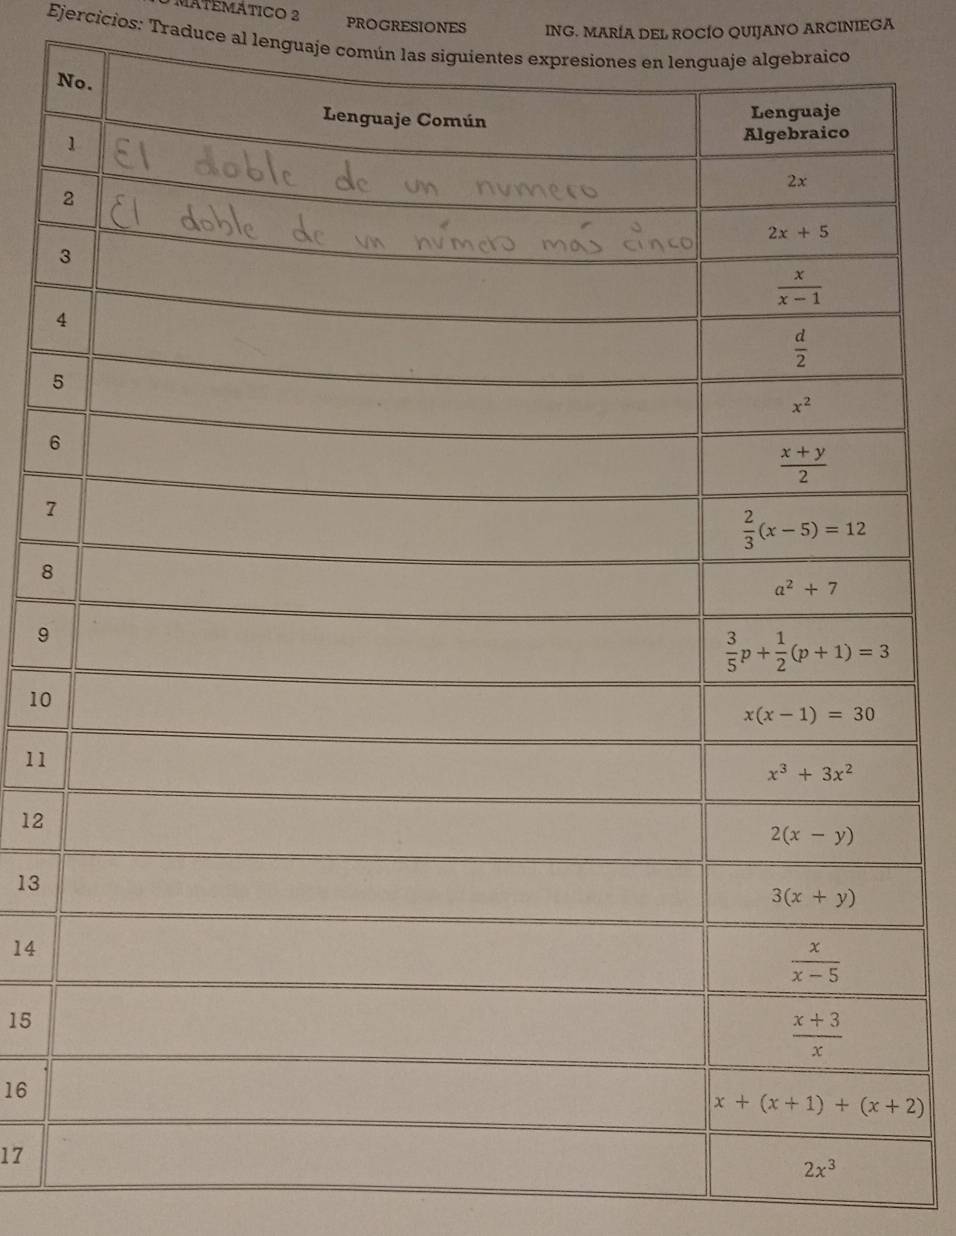 MATEMÁTICO 2 PROGRESIONES ING. MARÍA DEL ROCÍO QUIJANO ARCINIEGA
Ejercicios: Traduce al lenguaje común las siguientes expresiones en lenguaje algebraico
No. Lenguaje Común Lenguaje Algebraico
1 El doble de un numero 2x
2 El doble de un número más cinco 2x + 5
3 x/(x − 1)
4 d/2
5 x²
6 (x + y)/2
7 2/3(x − 5) = 12
8 a² + 7
9 3/5p + 1/2(p + 1) = 3
10 x(x − 1) = 30
11 x³ + 3x²
12 2(x − y)
13 3(x + y)
14 x/(x − 5)
15 (x + 3)/x
16 x + (x + 1) + (x + 2)
17 2x³